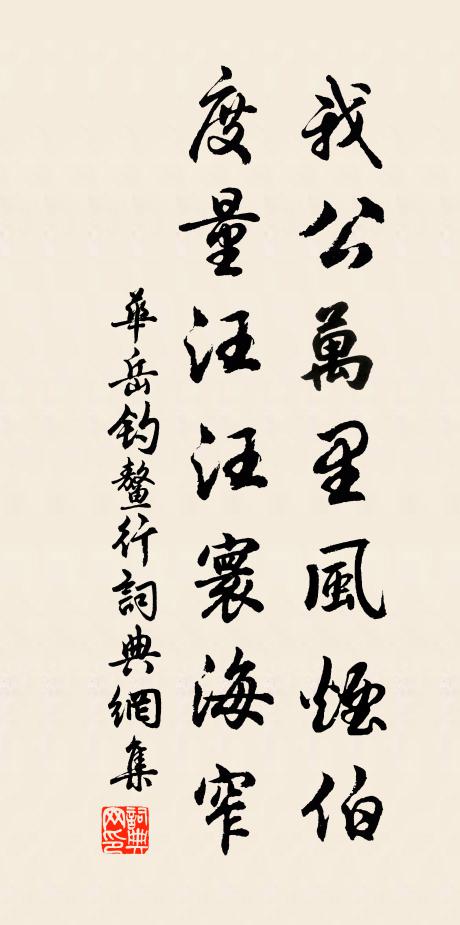 我公萬里風煙伯
度量汪汪寰海窄
華岳釣鰲行詞典網集
詞典網印